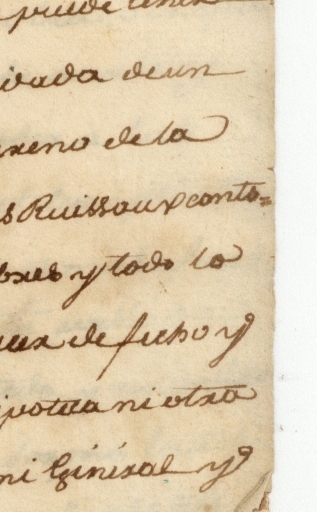 puede tener
ivada de un
rreno de la
s Ruissoux conto=
bres y todo lo
de fecho y
ipoteca ni otra
ni General y